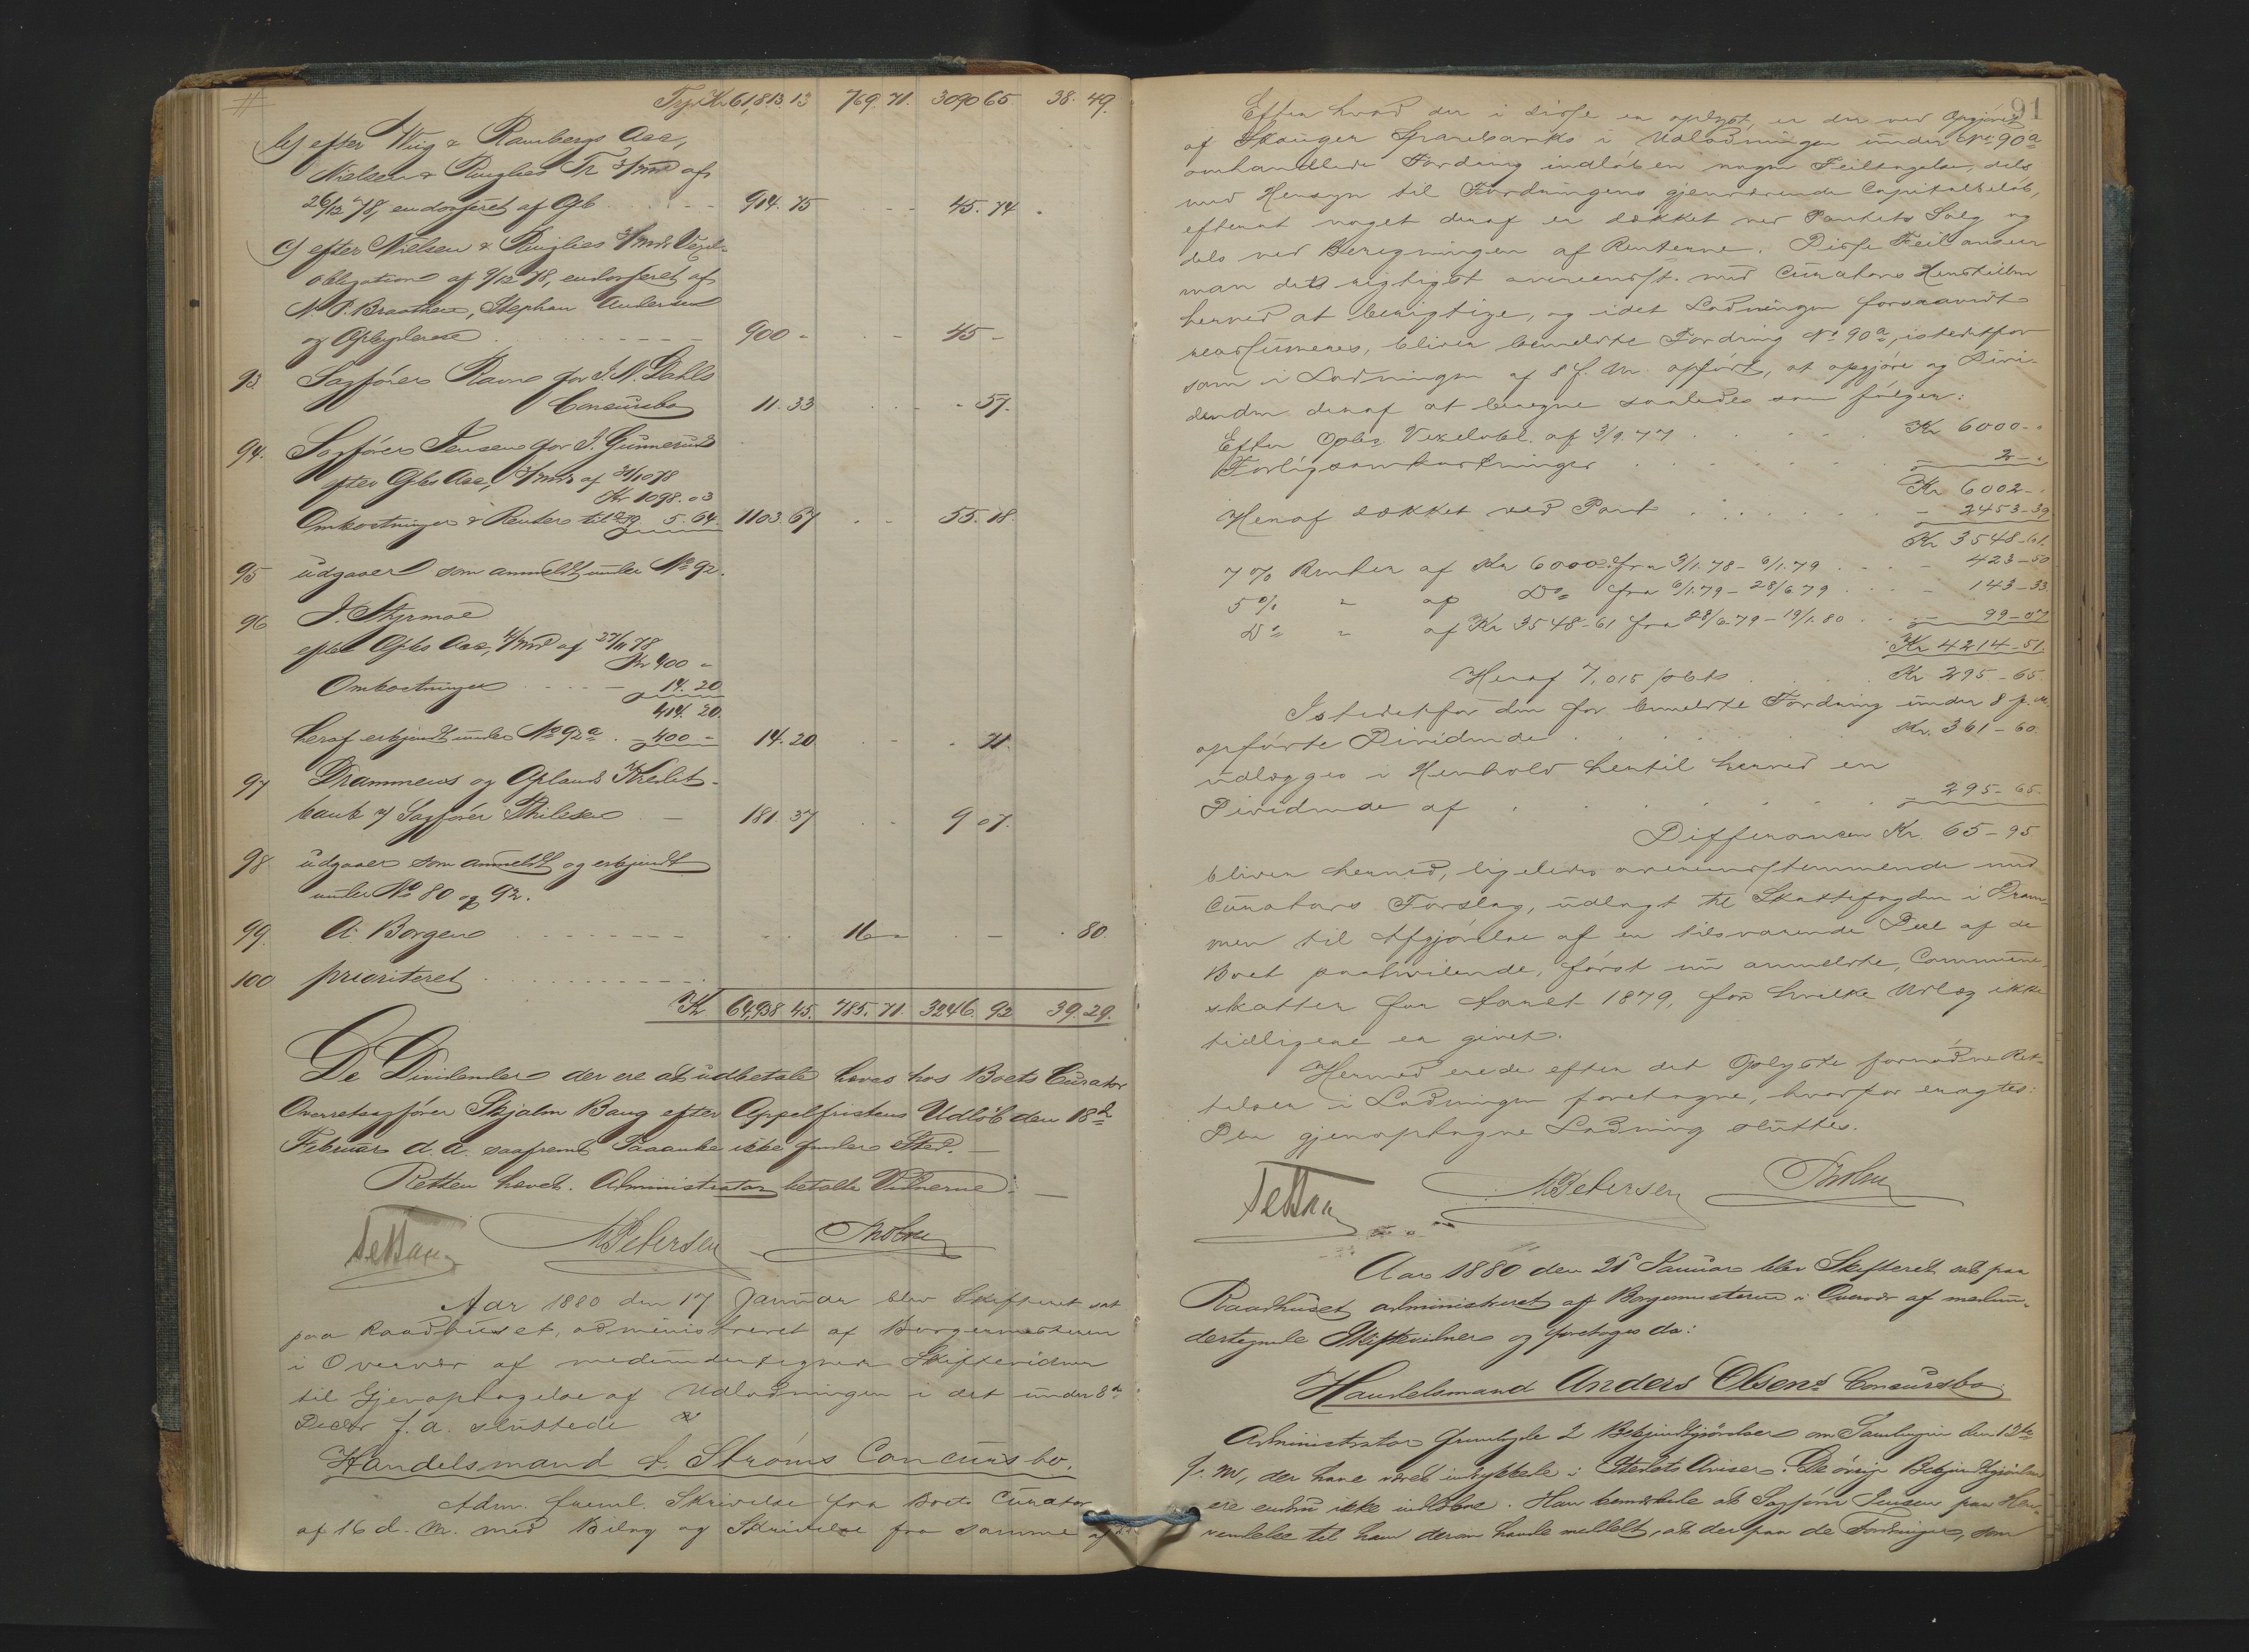 Trsp. Kr 61,813.13 769.71. 3090 65 38.49.
b) efter Wiig & Rambergs Aee,
Nielsen & Ruuglies Tr. 3/mnd af
26/12 78, endosseret af Opb. 914.75 - - 45.74
c) efter Nielsen & Ruuglies 3/mnds Vexel-
obligation af 9/12 78, endosseret af
N. P. Braathen, Stephan Andersen
og 900 - - 45 -
93. Sagfører Ravn for J. N. Dahls
Concursbo 11.33 - 57.
94. Sagfører Jensen for J. Gunnerud
efter Opbs Aee, 3/mnds af 31/10 78
Kr 1098.03
Omkostninger & Renter til 5.64. 1103.67 - 55.18
95 udgaaer som anmeldt under No 92.
96 J. Styrmoe
efter Opbs Aee, 4/mnd af 27/11 78
Kr 400 -
Omkostninger - 14.20
414.20.
heraf erkjendt under No 92a - 400 - 14.20 - 71.
97 Drammens og Oplands Kredit-
bank v/ Sagfører Thilesen - 181.37 9 07.
98 udgaaer som anmeldt og erkjendt
under No 80 og 92.
99. A. Borgen 16 - - 80.
100 prioriteret
Kr 64,938 45. 785.71. 3246.92 39.29.
De Dividender der ere at udbetale hæves hos Boets Curator
Overretssagfører Skjalm Bang efter Appelfristens Udløb den 18de
Februar d. A. saafremt Paaanke ikke finder Sted. -
Retten hævet. Administrator betalte Vidnerne. -
M Petersen
Aar 1880 den 17 Januar blev Skifteret sat
paa Raadhuset, administreret af Borgermesteren
i Overvær af medundertegnede Skiftevidner
til Gjenoptagelse af Udlodningen i det under 8de
Decbr f. A. sluttede
Handelsmand A. Strøms Concursbo.
Adm. freml. Skrivelse fra Boets Curator
af 16 d. M. med Bilag og Skrivelse fra samme af
91
Efter hvad der i disse er oplyst, er der ved Opgjøret
af Skauger Sparebanks i Udlodningen under No 90a
omhandlede Fordring indløben nogen Feiltagelse, dels
med Hensyn til Fordringens gjenværende Capitalbeløb,
efterat noget deraf er dækket ved Pantets Salg og
dels ved Beregningen af Renterne. Disse Feil anseer
man det rigtigst overensst. med Curators Henstillen
herved at berigtige, og idet Lodningen forsaavidt
reassumeres, bliver bemeldte Fordring No 90a, istedetfor
som i Lodningen af 8 f. M. opført, at opgjøre og Divi-
denden deraf at beregne saaledes som følger:
Efter Opbs Vexelobl. af 3/9.77 Kr 6000 -
Forligsomkostninger 2 -
Kr 6002 -
Heraf dækket ved Pant - 2453-39
Kr 3548-61.
7 % Renter af Kr 6000 fra 3/1.78 - 6/1.79 - 423-50
5 % " af Do fra 6/1.79 - 28/6 79 - 143-33.
Do " af Kr 3548-61 fra 28/6.79 - 19/1.80 - 99-07
Kr 4214-51.
Heraf 7,015 pCt Kr 295-65.
Istedetfor den for bemeldte Fordring under 8 f. M.
opførte Dividende Kr. 361-60.
udlægges i Henhold hertil herved en
Dividende af - 295-65.
Differancen Kr. 65-95
bliver herved, ligeledes overensstemmende med
Curators Forslag, udlagt til Skattefogden i Dram-
men til Afgjørelse af en tilsvarende Deel af de
Boet paahvilende, først nu anmeldte, Commune-
skatter for Aaret 1879, for hvilke Udlæg ikke
tidligere er givet.
Hermed ere de efter det Oplyste fornødne Ret-
telser i Lodningen foretagne, hvorfor eragtes:
Den gjenoptagne Lodning sluttes.
M Petersen
Aar 1880 den 21 Januar blev Skifteret sat paa
Raadhuset administreret af Borgermesteren i Overvær af medun-
dertegnede Skiftevidner og foretoges da:
Handelsmand Anders Olsens Concursbo.
Administrator fremlagde 2 Bekjendtgjørelser om Samlingen den 13de
f. M., der have været indrykkede i Stedets Aviser. De øvrige Bekjendtgjørelser
ere endnu ikke indløbne. Han bemærkede at Sagfører Jensen paa Hen-
vendelse til ham derom havde meldt, at der paa de Fordringer, som